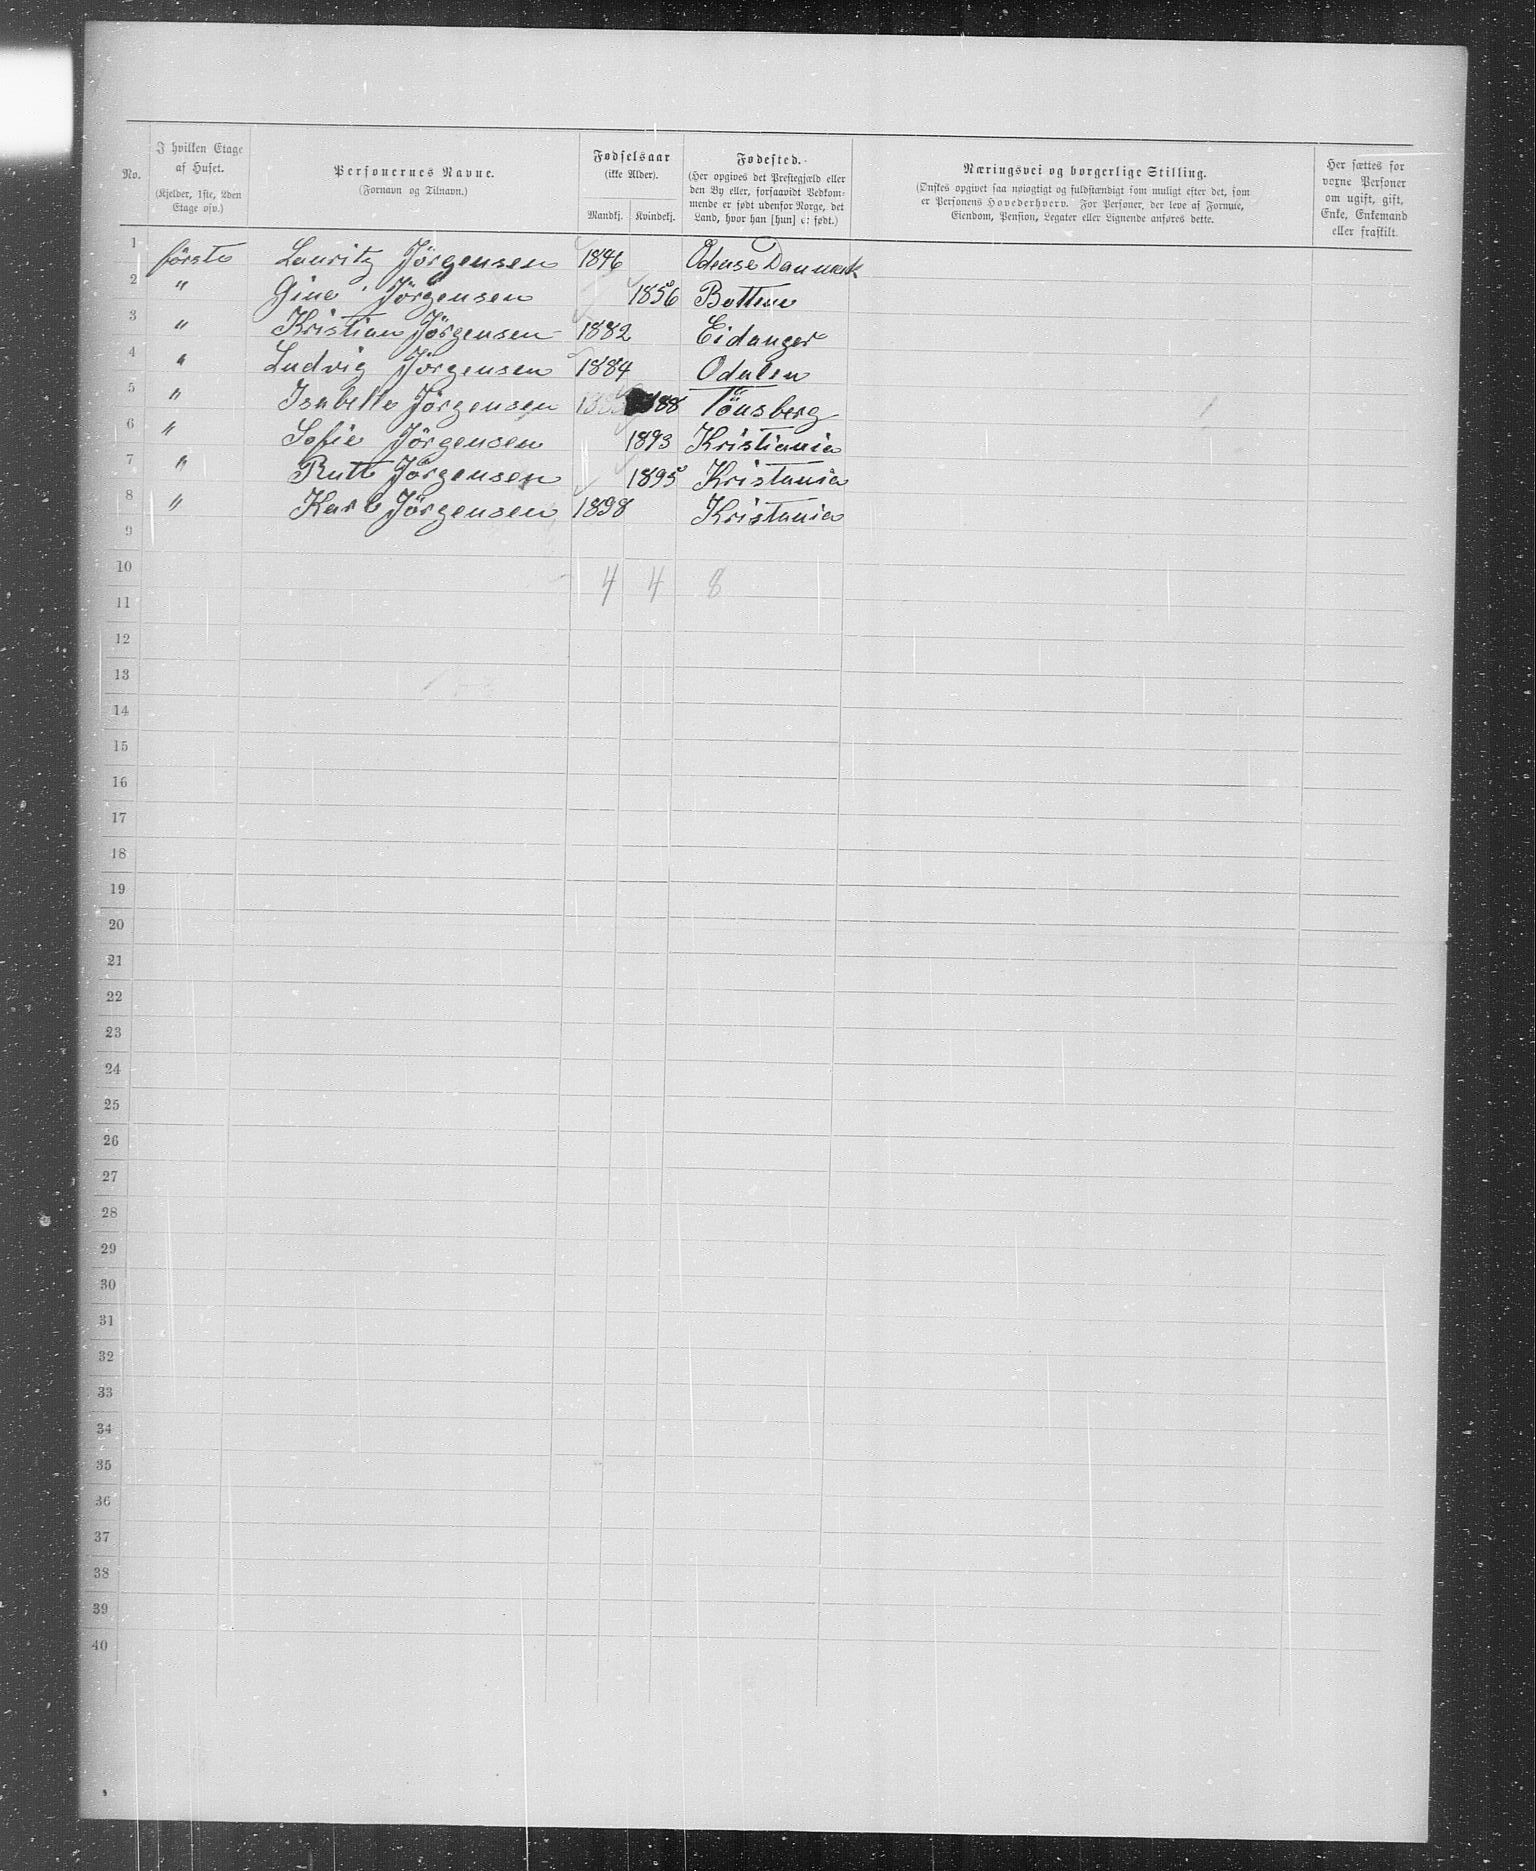 No. I hvilken Etage af Huset. (Kjelder, 1ste, 2den Etage osv.) Personernes Navne. (Fornavn og Tilnavn.) Fødselsaar (ikke Alder). Mandkj. Kvindekj. Fødested. (Her opgives det Prestegjæld eller den By eller, forsaavidt Vedkommende er født udenfor Norge, det Land, hvor han [hun] er født.) Næringsvei og borgerlige Stilling. (Ønskes opgivet saa nøiagtigt og fuldstændigt som muligt efter det, som er Personens Hovederhverv. For Personer, der leve af Formue, Eiendom, Pension, Legater eller Lignende anføres dette. Her sættes for voxne Personer om ugift, gift, Enke, Enkemand eller fraskilt.
1 første Lauritz Jörgensen 1846 Odense Danmark
2 " Gine Jörgensen 1856 Botten
3 " Kristian Jörgensen 1882 Eidanger
4 " Ludvig Jörgensen 1884 Odalen
5 " Isabella Jörgensen 188 Tönsberg
6 " Sofie Jörgensen 1893 Kristiania
7 " Rutt Jörgensen 1895 Kristania
8 " Karl Jörgensen 1898 Kristania
9
10 4 4 8
11
12
13
14
15
16
17
18
19
20
21
22
23
24
25
26
27
28
29
30
31
32
33
34
35
36
37
38
39
40